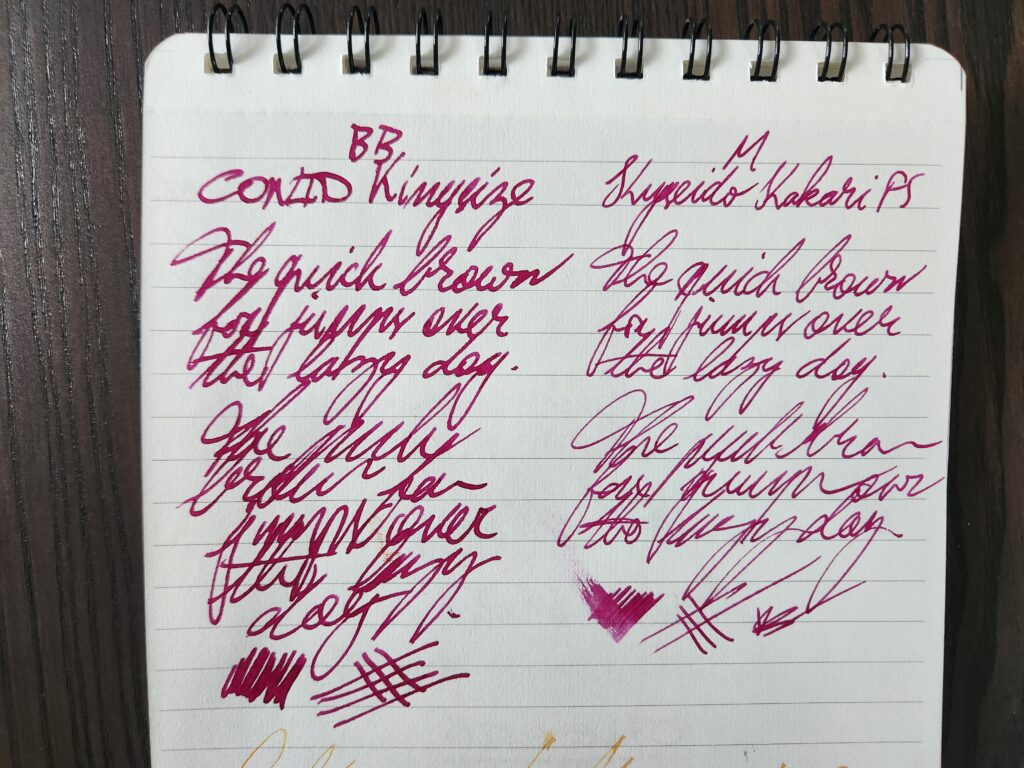 BB
CONID Kingsize
The quick brown
fox jumps over
the lazy dog.
The quick
brown fox
jumps over
the lazy
dog.
M
Kyuseido Kakari PS
The quick brown
fox jumps over
the lazy dog.
The quick brown
fox jumps over
the lazy dog.